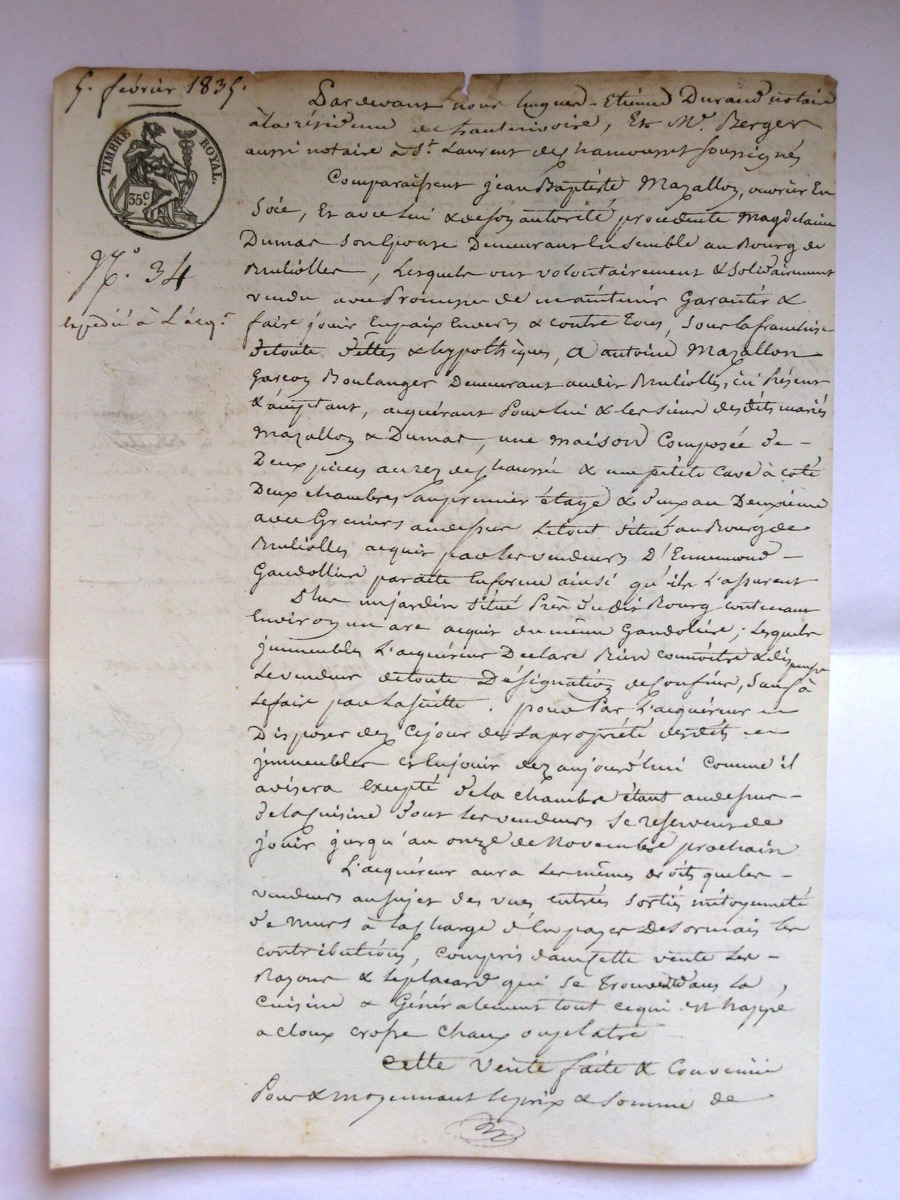 5. février 1835.
TIMBRE ROYAL.
35c
N.o 34
expédié à L'acq.r
Pardevant nous hugues-Etienne Durand notaire
à la résidence de hauterivoire, Et M.e Berger
aussi notaire à St. Laurent de chamousset soussignés
Comparaissent jean Baptiste Mazallon, ouvrier En
Soie, Et avec lui & de son autorité procédente Magdelaine
Dumas son Epouse Demeurant Ensemble au Bourg de
Bruliolles, Lesquels ont volontairement & solidairement
vendu avec Promesse de maintenir Garantir &
faire jouir En paix Envers & contre Tous, sous la franchise
de toute dettes & hypothèques, A antoine Mazallon
Garcon Boulanger Demeurant audit Brulliolles, ici Présent
& acceptant, acquérant Pour lui & les siens desdits mariés
Mazallon & Dumas, une maison Composée de
Deux pièces au rez de chaussée & une petite Cave à coté
Deux chambres au premier étage & deux au Deuxième
avec Greniers audessus Le tout situé au Bourg de
Brulliolles acquis par les vendeurs D'Ennemond
Gaudollière par acte En forme ainsi qu'ils L'assurent
Plus un jardin situé Près dudit Bourg contenant
Environ un are acquis du même Gandolière; Lesquels
jmmeubles L'acquéreur Declare Bien connoitre & dispense
Le vendeur de toute Désignation de confins, Sauf à
Le faire par La suitte. pour Par L'acquéreur
Disposer dez Ce jour de La propriété desdits
jmmeubles et En jouir dez aujourd'hui Comme il
avisera Excepté de la chambre étant au dessus
de la Cuisine dont Les vendeurs se reservent de
jouir jusqu'au onze de Novembre prochain
L'acquéreur aura Les mêmes droits que les
vendeurs au sujet des vues entrés sortis mitoyenneté
de Murs à la charge d'En payer Desormais les
contributions, compris dans cette vente Les
Rayons & Le placard qui se trouvent dans La
Cuisine & Généralement tout ce qui est happé
a cloux crosse chaux ou platre
Cette vente faite & Convenue
Pour & moyennant Le prix & somme de